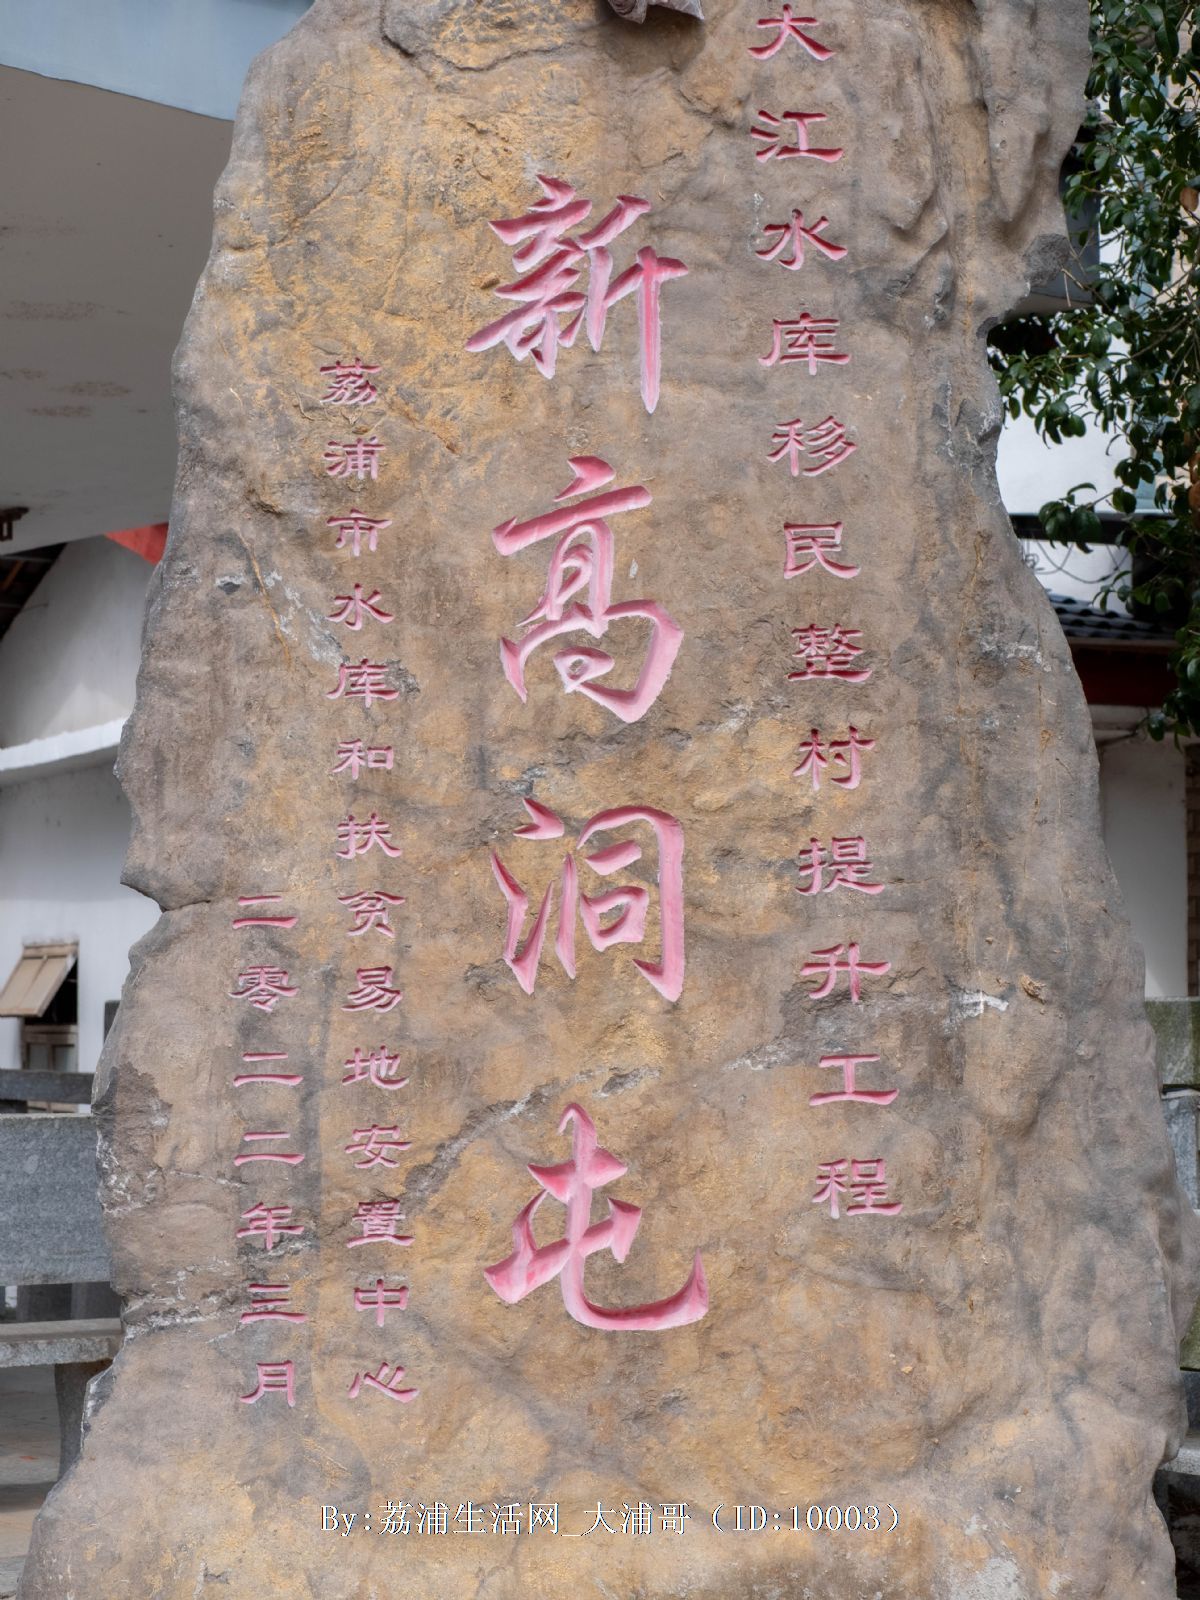 大江水库移民整村提升工程
新高洞屯
荔浦市水库和扶贫易地安置中心
二零二二年三月
By:荔浦生活网_大浦哥（ID:10003）